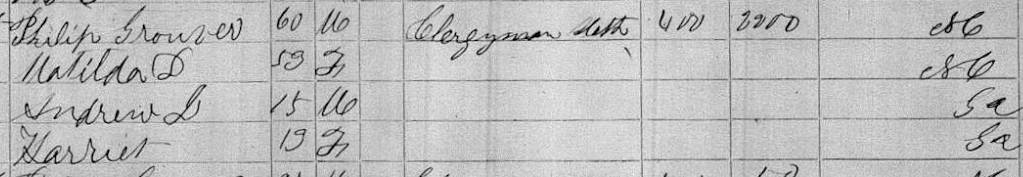 Philip Grouver 60 M Clergyman Meth 400 3200 NC
Matilda D 53 F NC
Andrew L 15 M Ga
Harriet 19 F Ga